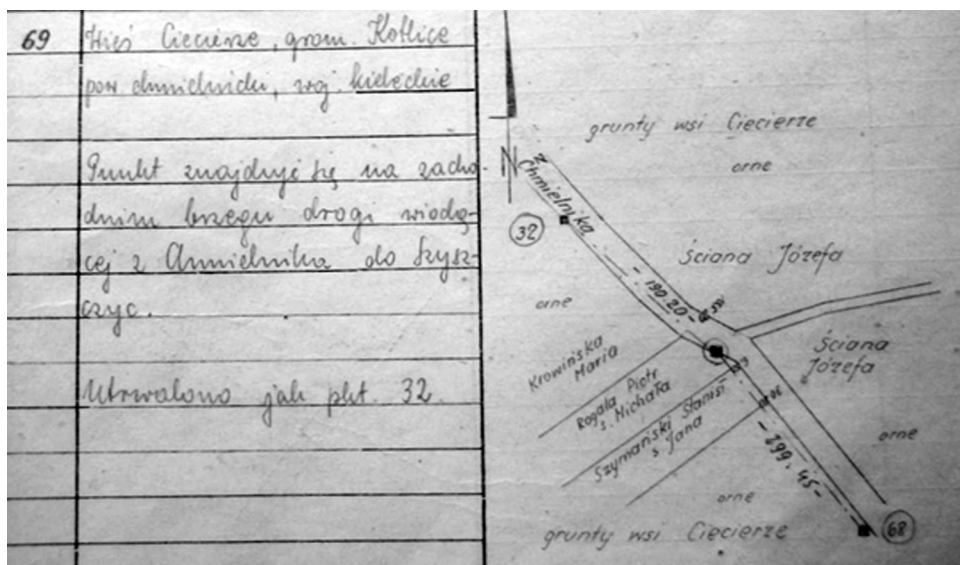 69
Wieś Ciecierze, grom. Kotlice
pow chmielnicki, woj. kieleckie
Punkt znajduje się na zacho-
dnim brzegu drogi wiodą-
cej z Chmielnika do Szysz-
czyc.
Utrwalono jak pkt. 32.
grunty wsi Ciecierze
orne
N
z Chmielnika
32
Ściana Józefa
190.20
orne
Ściana
Józefa
Krowińska
Maria
Rogala Piotr
s. Michała
Szymański Stanisł
s Jana
299.45
orne
orne
grunty wsi Ciecierze
68